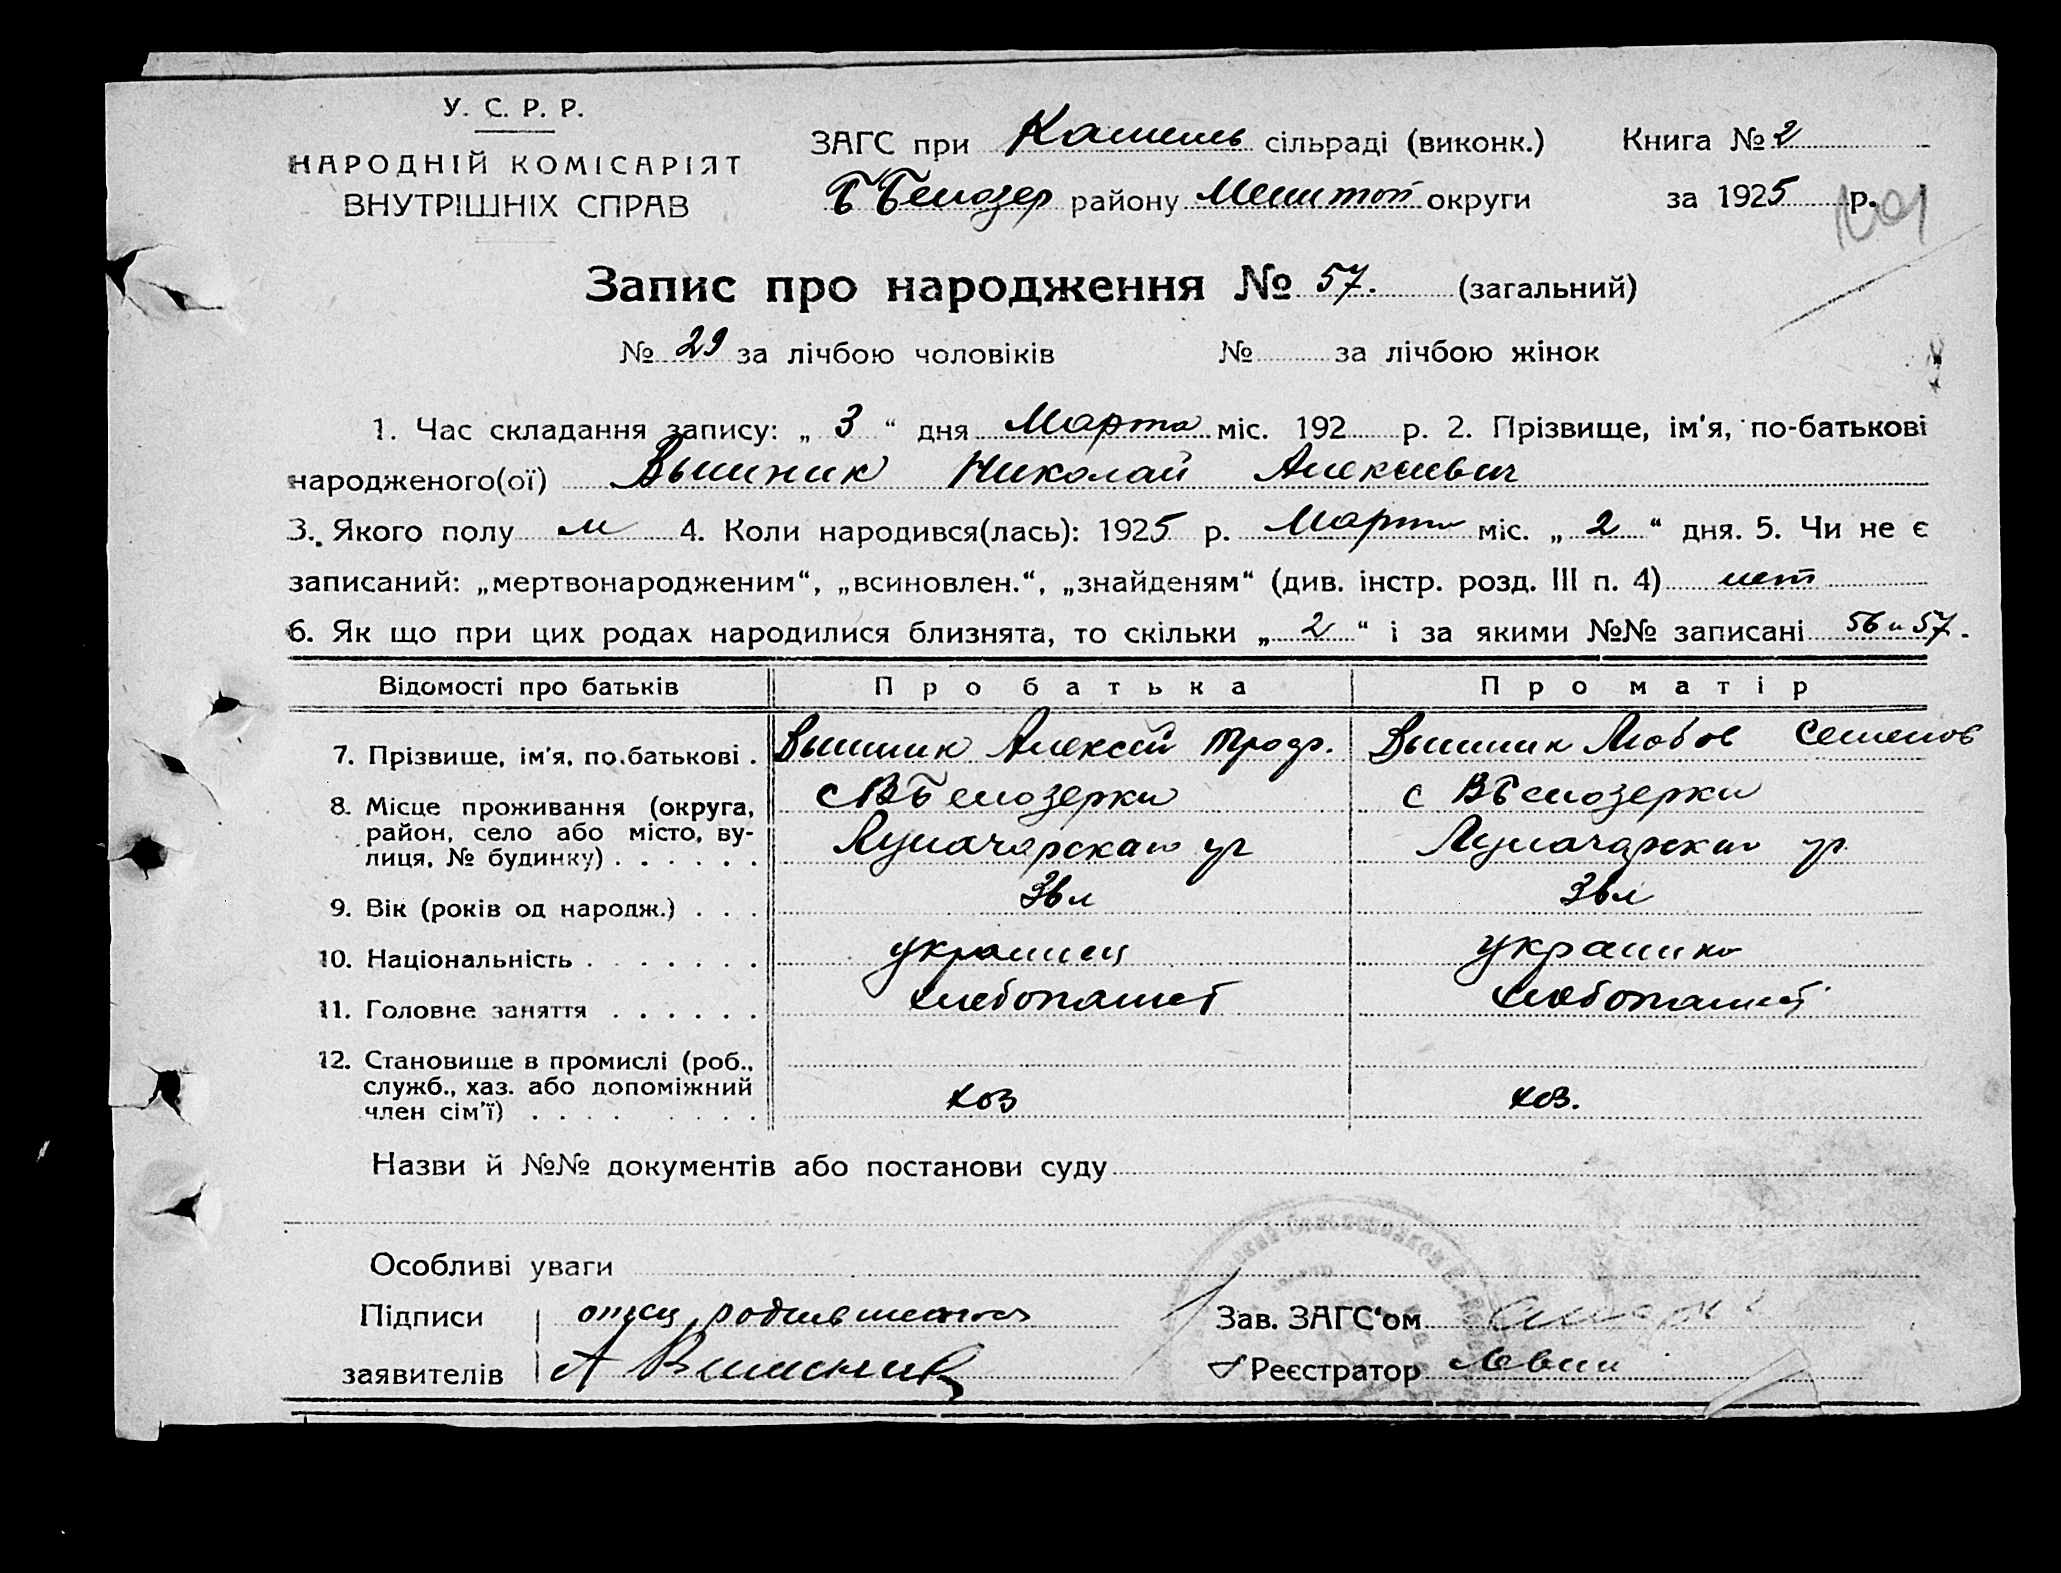 У. С. Р. Р.
НАРОДНІЙ КОМІСАРІЯТ
ВНУТРІШНІХ СПРАВ
ЗАГС при сільраді (виконк.) Книга № 2
Белозер району Мелитоп округи за 1925 р.
101
Запис про народження № 57. (загальний)
№ 29 за лічбою чоловіків № за лічбою жінок
1. Час складання запису: „ 3 “ дня Марта міс. 192 р. 2. Прізвище, ім'я, по-батькові
народженого(ої) Вышник Николай Алексиевич
3. Якого полу м 4. Коли народився(лась): 1925 р. Марта міс. „ 2 “ дня. 5. Чи не є
записаний: „мертвонародженим“, „всиновлен.“, „знайденям“ (див. інстр. розд. III п. 4) нет
6. Як що при цих родах народилися близнята, то скільки „ 2 “ і за якими №№ записані 56 и 57.
Відомості про батьків Про батька Про матір
7. Прізвище, ім'я, по.батькові . Вышник Алексей Вышник Любов Семенов
8. Місце проживання (округа, с ВБелозерки с ВБелозерки
район, село або місто, ву-
лиця, № будинку) . . . . . . Луначарская ул Луначарская ул
9. Вік (років од народж.) . . . 36 л 36 л
10. Національність . . . . . . . украинец украинка
11. Головне заняття . . . . . . хлебопашест хлебопашест
12. Становище в промислі (роб.,
служб., хаз. або допоміжний
член сім'ї) . . . . . . . . хоз хоз.
Назви й №№ документів або постанови суду
Особливі уваги
Підписи отец родившегося Зав. ЗАГС'ом
заявителів А Вишник Реєстратор